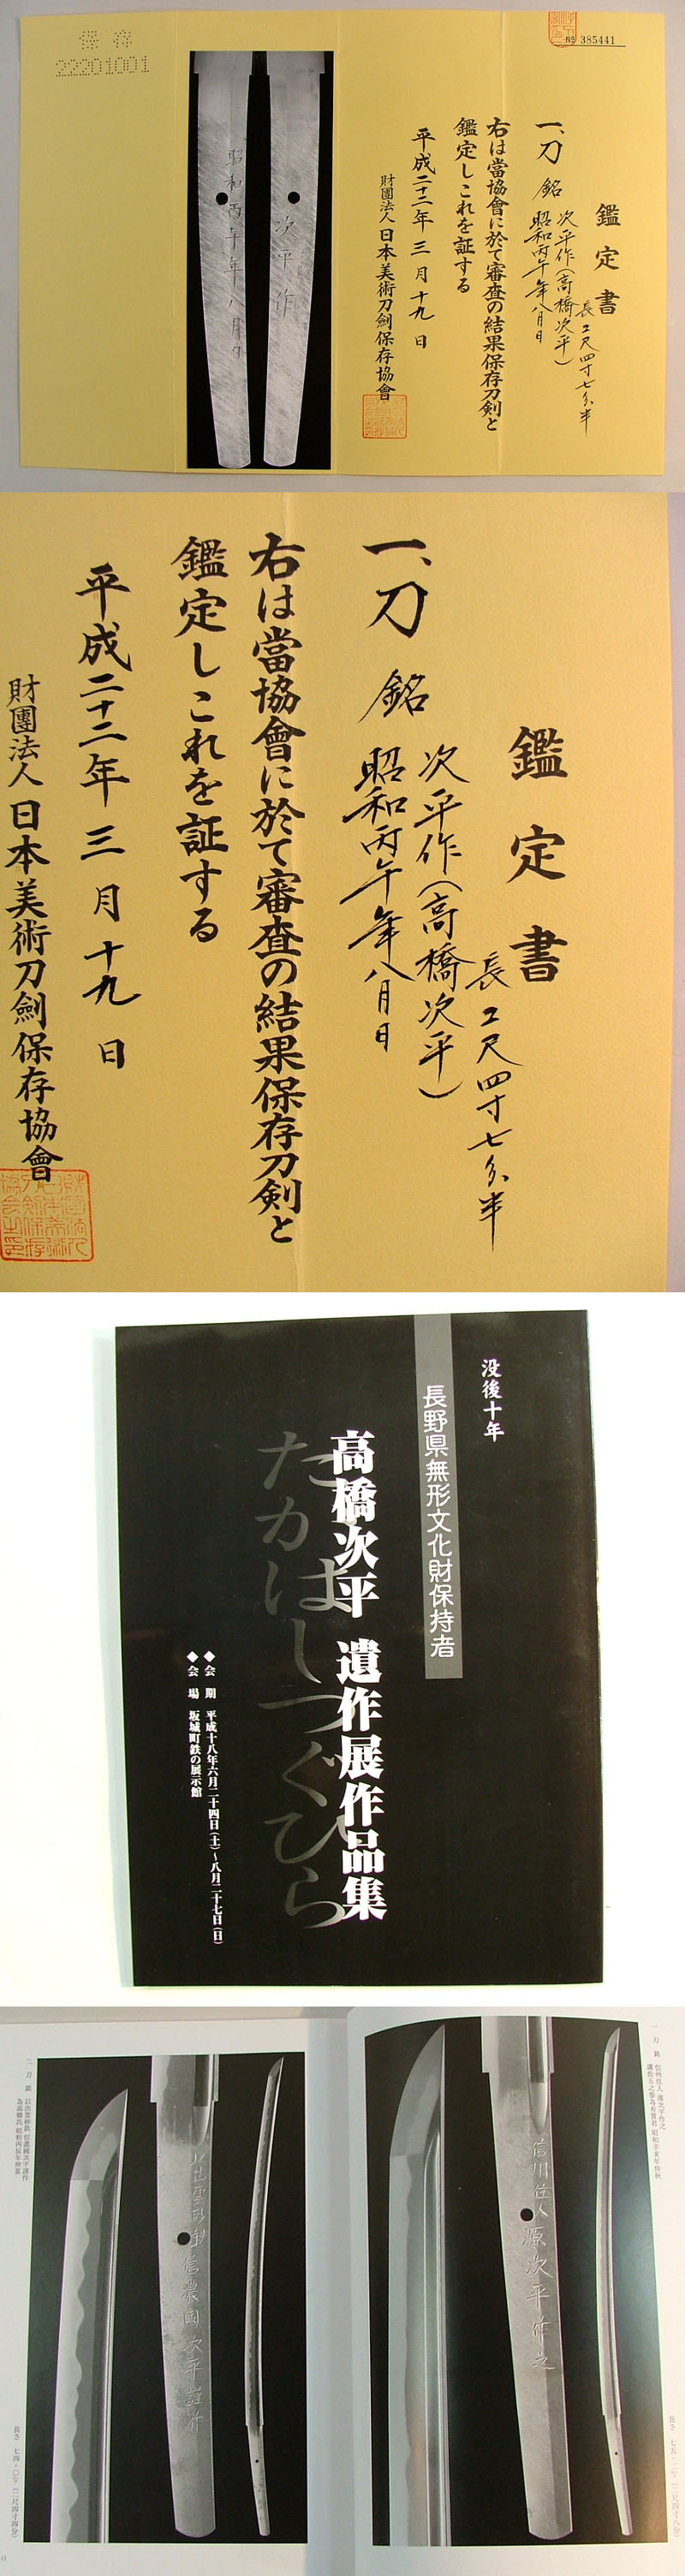 保存
22201001
No 385441
鑑定書
長二尺四寸七分半
一、刀 銘 次平作(高橋次平)
昭和丙午年八月日
右は當協會に於て審査の結果保存刀剣と
鑑定しこれを証する
平成二十二年三月十九日
財團法人日本美術刀劍保存協會
次平作
昭和丙午年八月日
鑑定書
長二尺四寸七分半
一、刀 銘 次平作(高橋次平)
昭和丙午年八月日
右は當協會に於て審査の結果保存刀剣と
鑑定しこれを証する
平成二十二年三月十九日
財團法人日本美術刀劍保存協會
没後十年
長野県無形文化財保持者
高橋次平 遺作展作品集
たかはしつぐひら
◆会 期 平成十八年六月二十四日(土)~八月二十七日(日)
◆会 場 坂城町鉄の展示館
一 刀 銘 信州住人 源次平作之
昭和辛亥年仲秋
信州住人源次平作之
長さ 七五・二㌢(二尺四寸八分)
一 刀 銘
信濃國次平謹作
長さ 七四・〇㌢(二尺四寸四分)